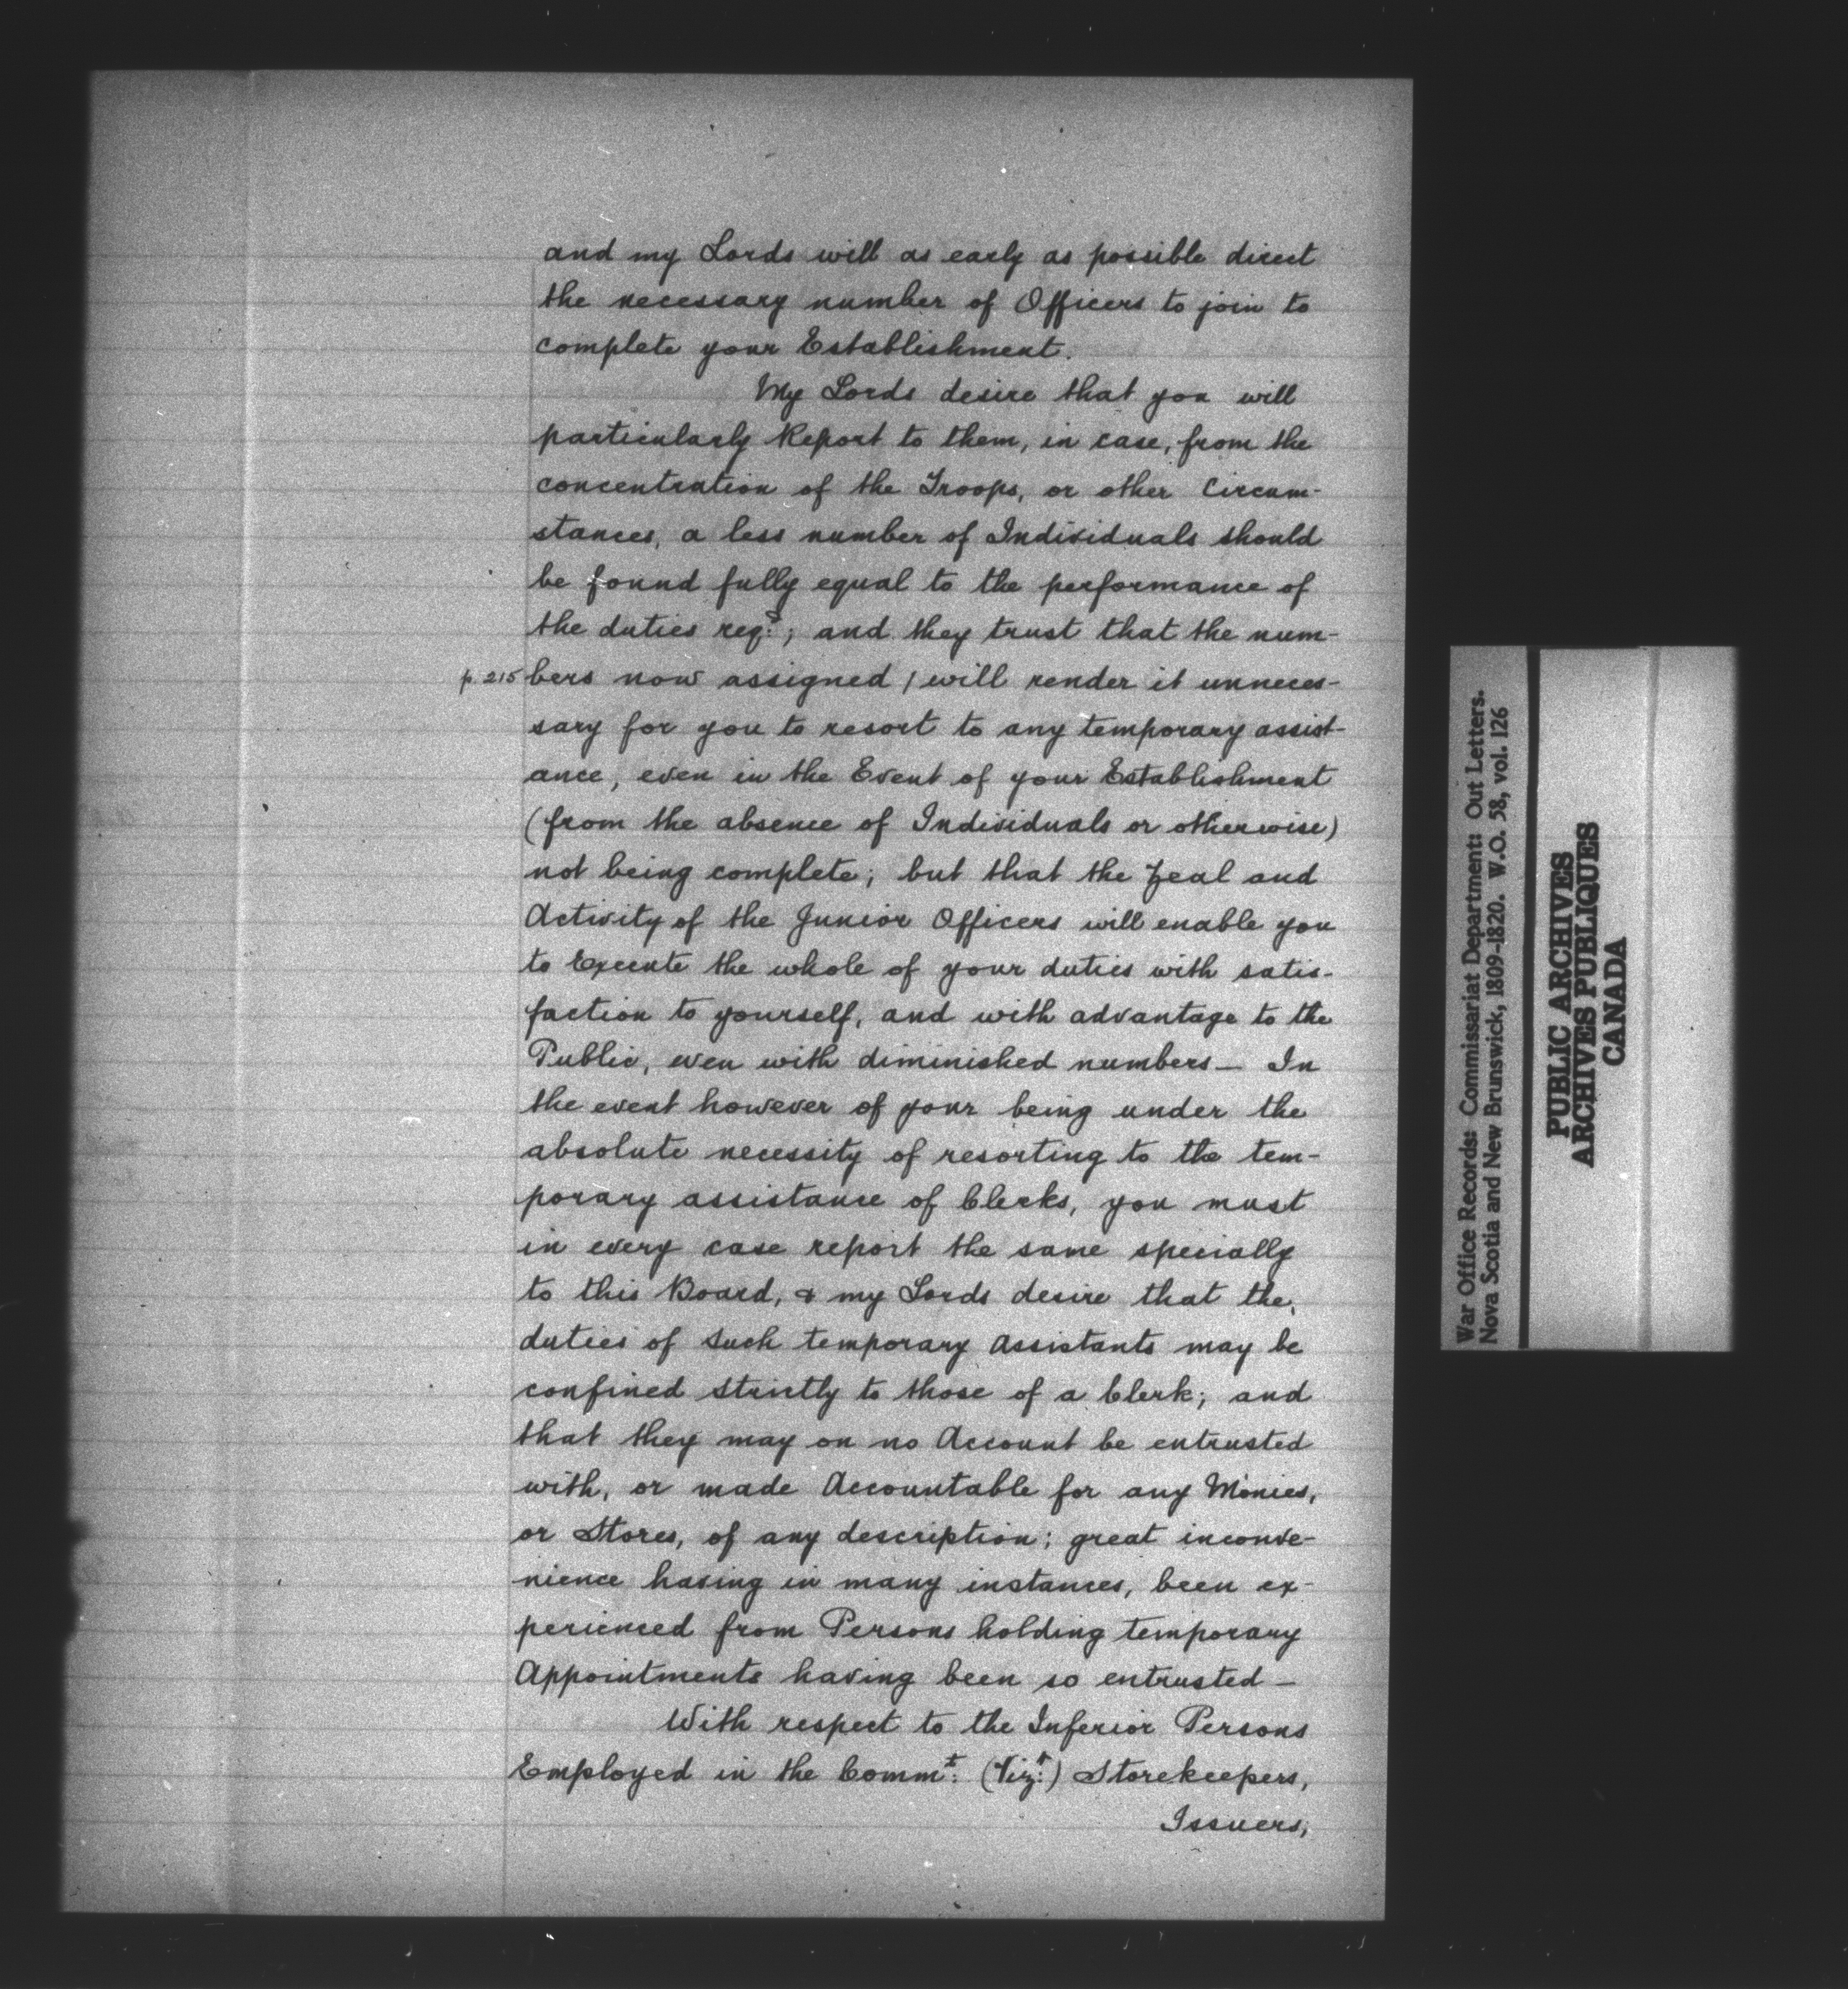 and my Lords will as early as possible direct
the necessary number of Officers to join to
complete your Establishment.
My Lords desire that you will
particularly Report to them, in case, from the
concentration of the Troops, or other Circum-
stances, a less number of Individuals should
be found fully equal to the performance of
the duties reqd:; and they trust that the num-
p. 215 bers now assigned / will render it unneces-
sary for you to resort to any temporary assist-
ance, even in the Event of your Establishment
(from the absence of Individuals or otherwise)
not being complete; but that the Zeal and
Activity of the Junior Officers will enable you
to Execute the whole of your duties with satis-
faction to yourself, and with advantage to the
Public, even with diminished numbers— In
the event however of your being under the
absolute necessity of resorting to the tem-
porary assistance of Clerks, you must
in every case report the same specially
to this Board, & my Lords desire that the
duties of such temporary Assistants may be
confined strictly to those of a Clerk; and
that they may on no Account be entrusted
with, or made Accountable for any Monies,
or Stores, of any description; great inconve-
nience having in many instances, been ex-
perienced from Persons holding temporary
Appointments having been so entrusted—
With respect to the Inferior Persons
Employed in the Commt: (Vizt:) Storekeepers,
Issuers,
War Office Records: Commissariat Department: Out Letters.
Nova Scotia and New Brunswick, 1809-1820. W.O. 58, vol. 126
PUBLIC ARCHIVES
ARCHIVES PUBLIQUES
CANADA